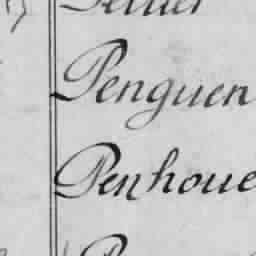 Penguen
Penhoue